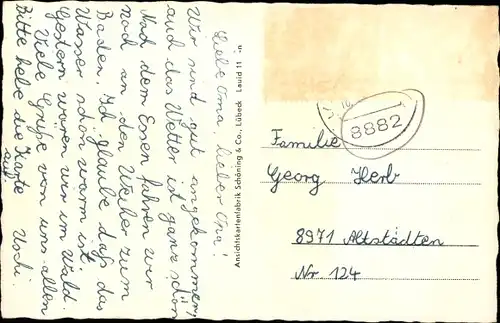 Liebe Oma, lieber Opa!
Wir sind gut angekommen,
auch das Wetter ist ganz schön
Nach dem Essen fahren wir
noch an den Weiher zum
Baden. Ich glaube daß das
Wasser schon warm ist.
Gestern waren wir im Wald.
Viele Grüße von uns allen
Uschi.
Bitte hebe die Karte
auf.
Ansichtskartenfabrik Schöning & Co., Lübeck
8882
Familie
Georg Herb
8971 Altstädten
Nr. 124